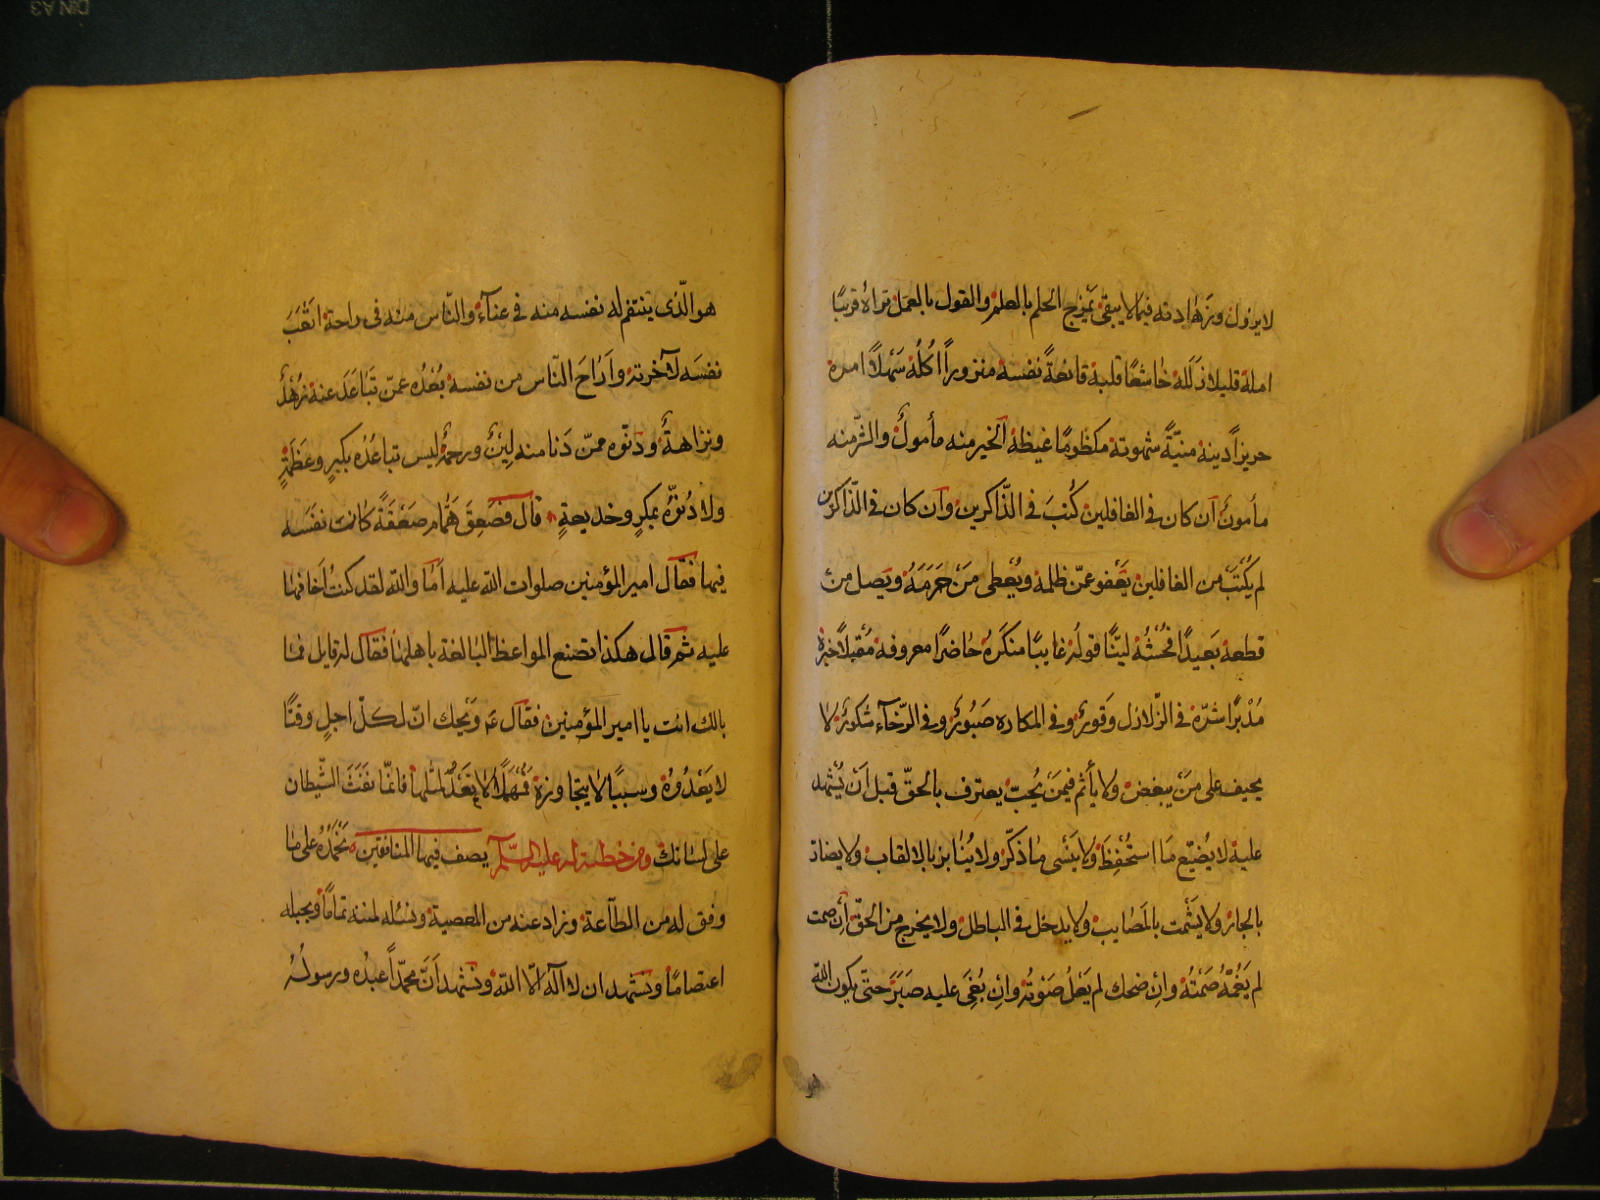 لا يزول وزهادته فيما لا يبقى يمزج الحلم بالعلم والقول بالعمل تراه قريبًا
امله قليلا زَلَله خاشعًا قلبه قانعةً نفسه منزوراً اُكلُه سَهلاً امره
حريزاً دينه ميّتةً شهوته مكظومًا غيظه الخير منه مأمولٌ والشّر منه
مأمونٌ اِن كان فى الغافلين كُتِبَ فى الذّاكرين وان كان فى الذّاكرين
لم يُكتَب من الغافلين يَعفو عمّن ظلمه ويُعطى مَن حَرَمَهُ ويَصل من
قطعه بَعيدًا فُحشُهُ ليّنًا قولُه غايبًا منكَرهُ حَاضرًا معروفه مُقبلاً خيرهُ
مُدْبرًا شرّه فى الزّلازل وَقورٌ وفى المكاره صَبُورٌ وفى الرّخآء شكورٌ لا
يحيف على مَن يبغض ولا يأثم فيمَن يُحِبّ يعترف بالحقّ قبل اَن يُشهد
عليه لا يُضيّع مَا استُحْفِظَ ولا يَنسٰى ما ذكّر ولا يُنٰابز بالالقاب ولا يضارّ
بالجار ولا يَشْمت بالمَصايب ولا يدخل فى الباطل ولا يخرج من الحقّ اِن صمت
لم يَغُمّهُ صَمْتُهُ وانْ ضحك لم يَعْلُ صَوتُه وانِ بُغِىَ عليه صَبَرَ حتّى يكون اللّه
هو الّذى ينتقم له نفسه منه فى عنآء والنّاس منه فى راحة اتعَبَ
نفسَه لآخرته واَرَاحَ النّاس من نفسه بُعْدُه عمّن تَبَاعَدَ عنه زُهْدٌ
ونزاهةٌ ودنّوه ممّن دَنا منه لِينٌ ورحمةٌ ليس تباعُدُه بكبرٍ وعَظَمَةٍ
ولا دُنوّه بمكرٍ وخديعةٍ قال فصَعِقَ هَمّام صَعْقَةً كانت نفسَه
فيها فقال امير المؤمنين صلوات اللّه عليه اَمَا واللّه لقد كنتُ اَخافها
عليه ثم قال هكذا تصنع المواعظ البالغة باهلها فقال له قايل فما
بالك انت يا امير المؤمنين فقال ع وَيْحك انّ لكلّ اجلٍ وقتًا
لا يَعْدُوهُ وسببًا لا يتجاوزه فَمَهْلًا لا تَعُدْ لمثلها فانمّا نَفَثَ الشّيطان
على لسَانك ومن خطبة له عليه السّلم يصف فيها المنافقين نَحْمَدُهُ على ما
وفق له من الطّاعة وزاد عنه من المعصية ونسئله لمننه تمامًا وبحبله
اعتصامًا ونشهد ان لا اله الّا اللّه ونشهد اَنَّ محمّداً عبدُه ورسولُهُ